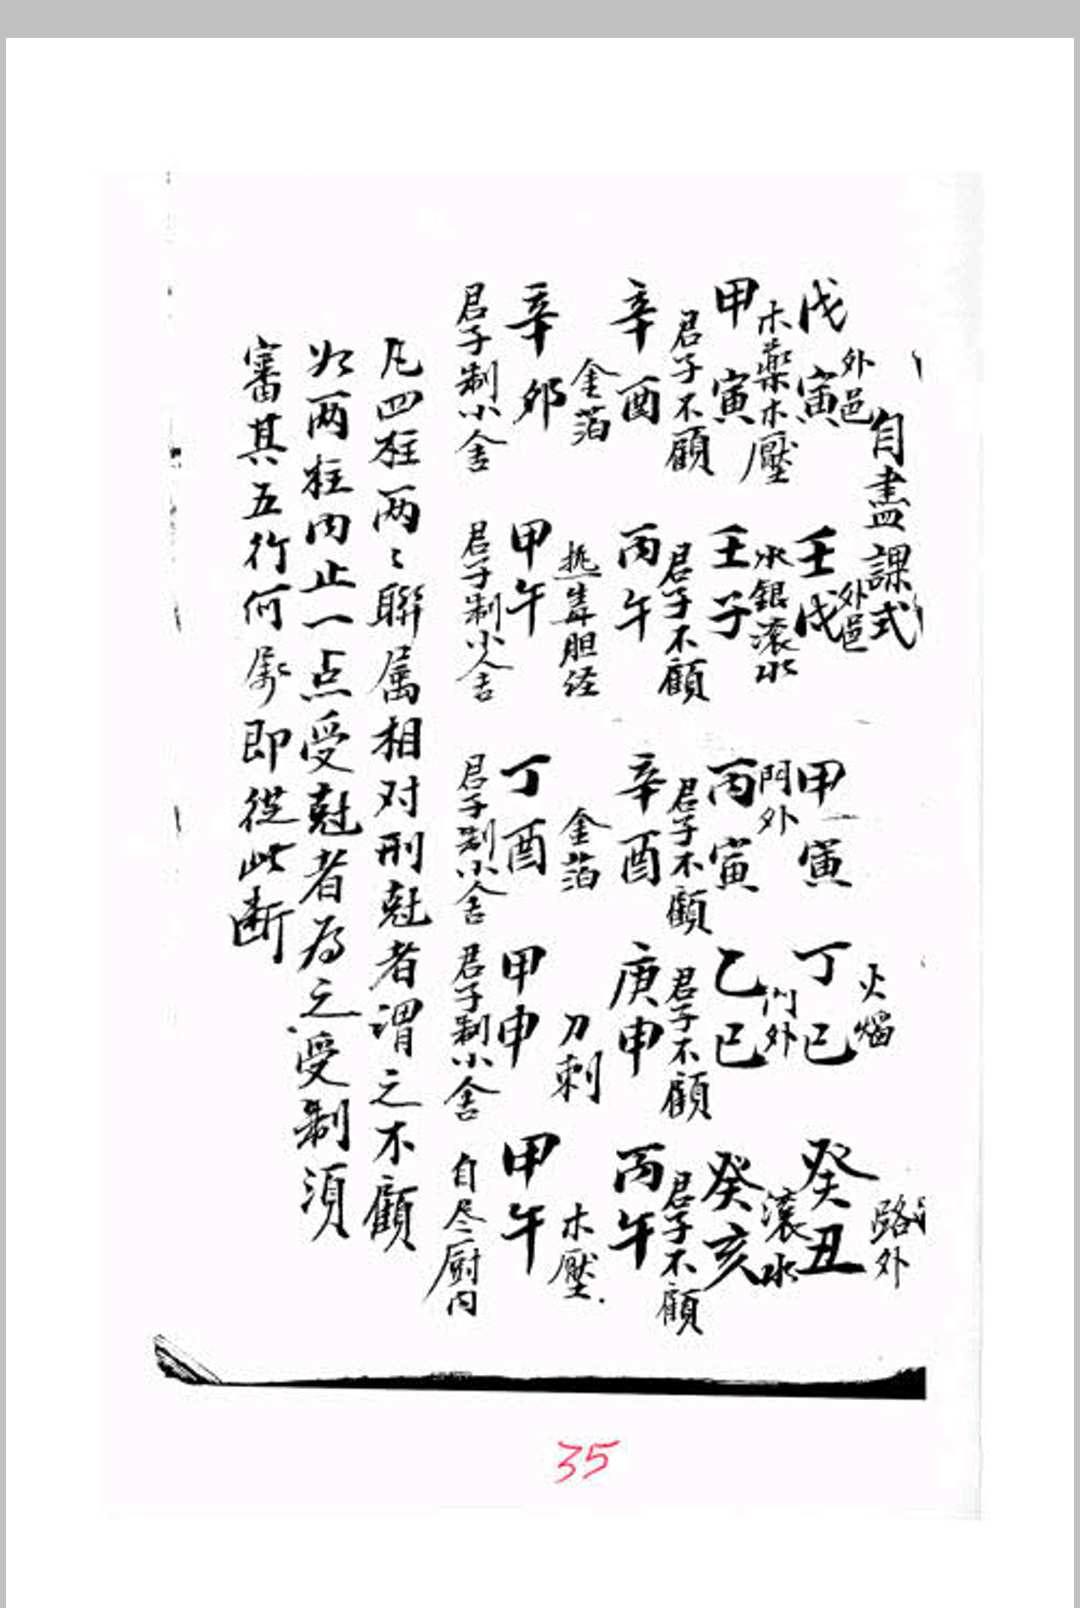 自盡課式
外邑 外邑 火焰 路外
戊寅 壬戌 甲寅 丁巳 癸丑
木藥木壓 水銀滾水 門外 门外 滾水
甲寅 壬子 丙寅 乙巳 癸亥
君子不顧 君子不顧 君子不顧 君子不顧 君子不顧
辛酉 丙午 辛酉 庚申 丙午
金箔 胆 金箔 刀刺 木壓
辛卯 甲午 丁酉 甲申 甲午
君子制小舍 君子制小人舍 君子制小舍 君子制小舍 自尽厨内
凡四柱两〻聯属相对刑尅者謂之不顧
两柱内止一点受尅者為之受制須
審其五行何属即從此断
35